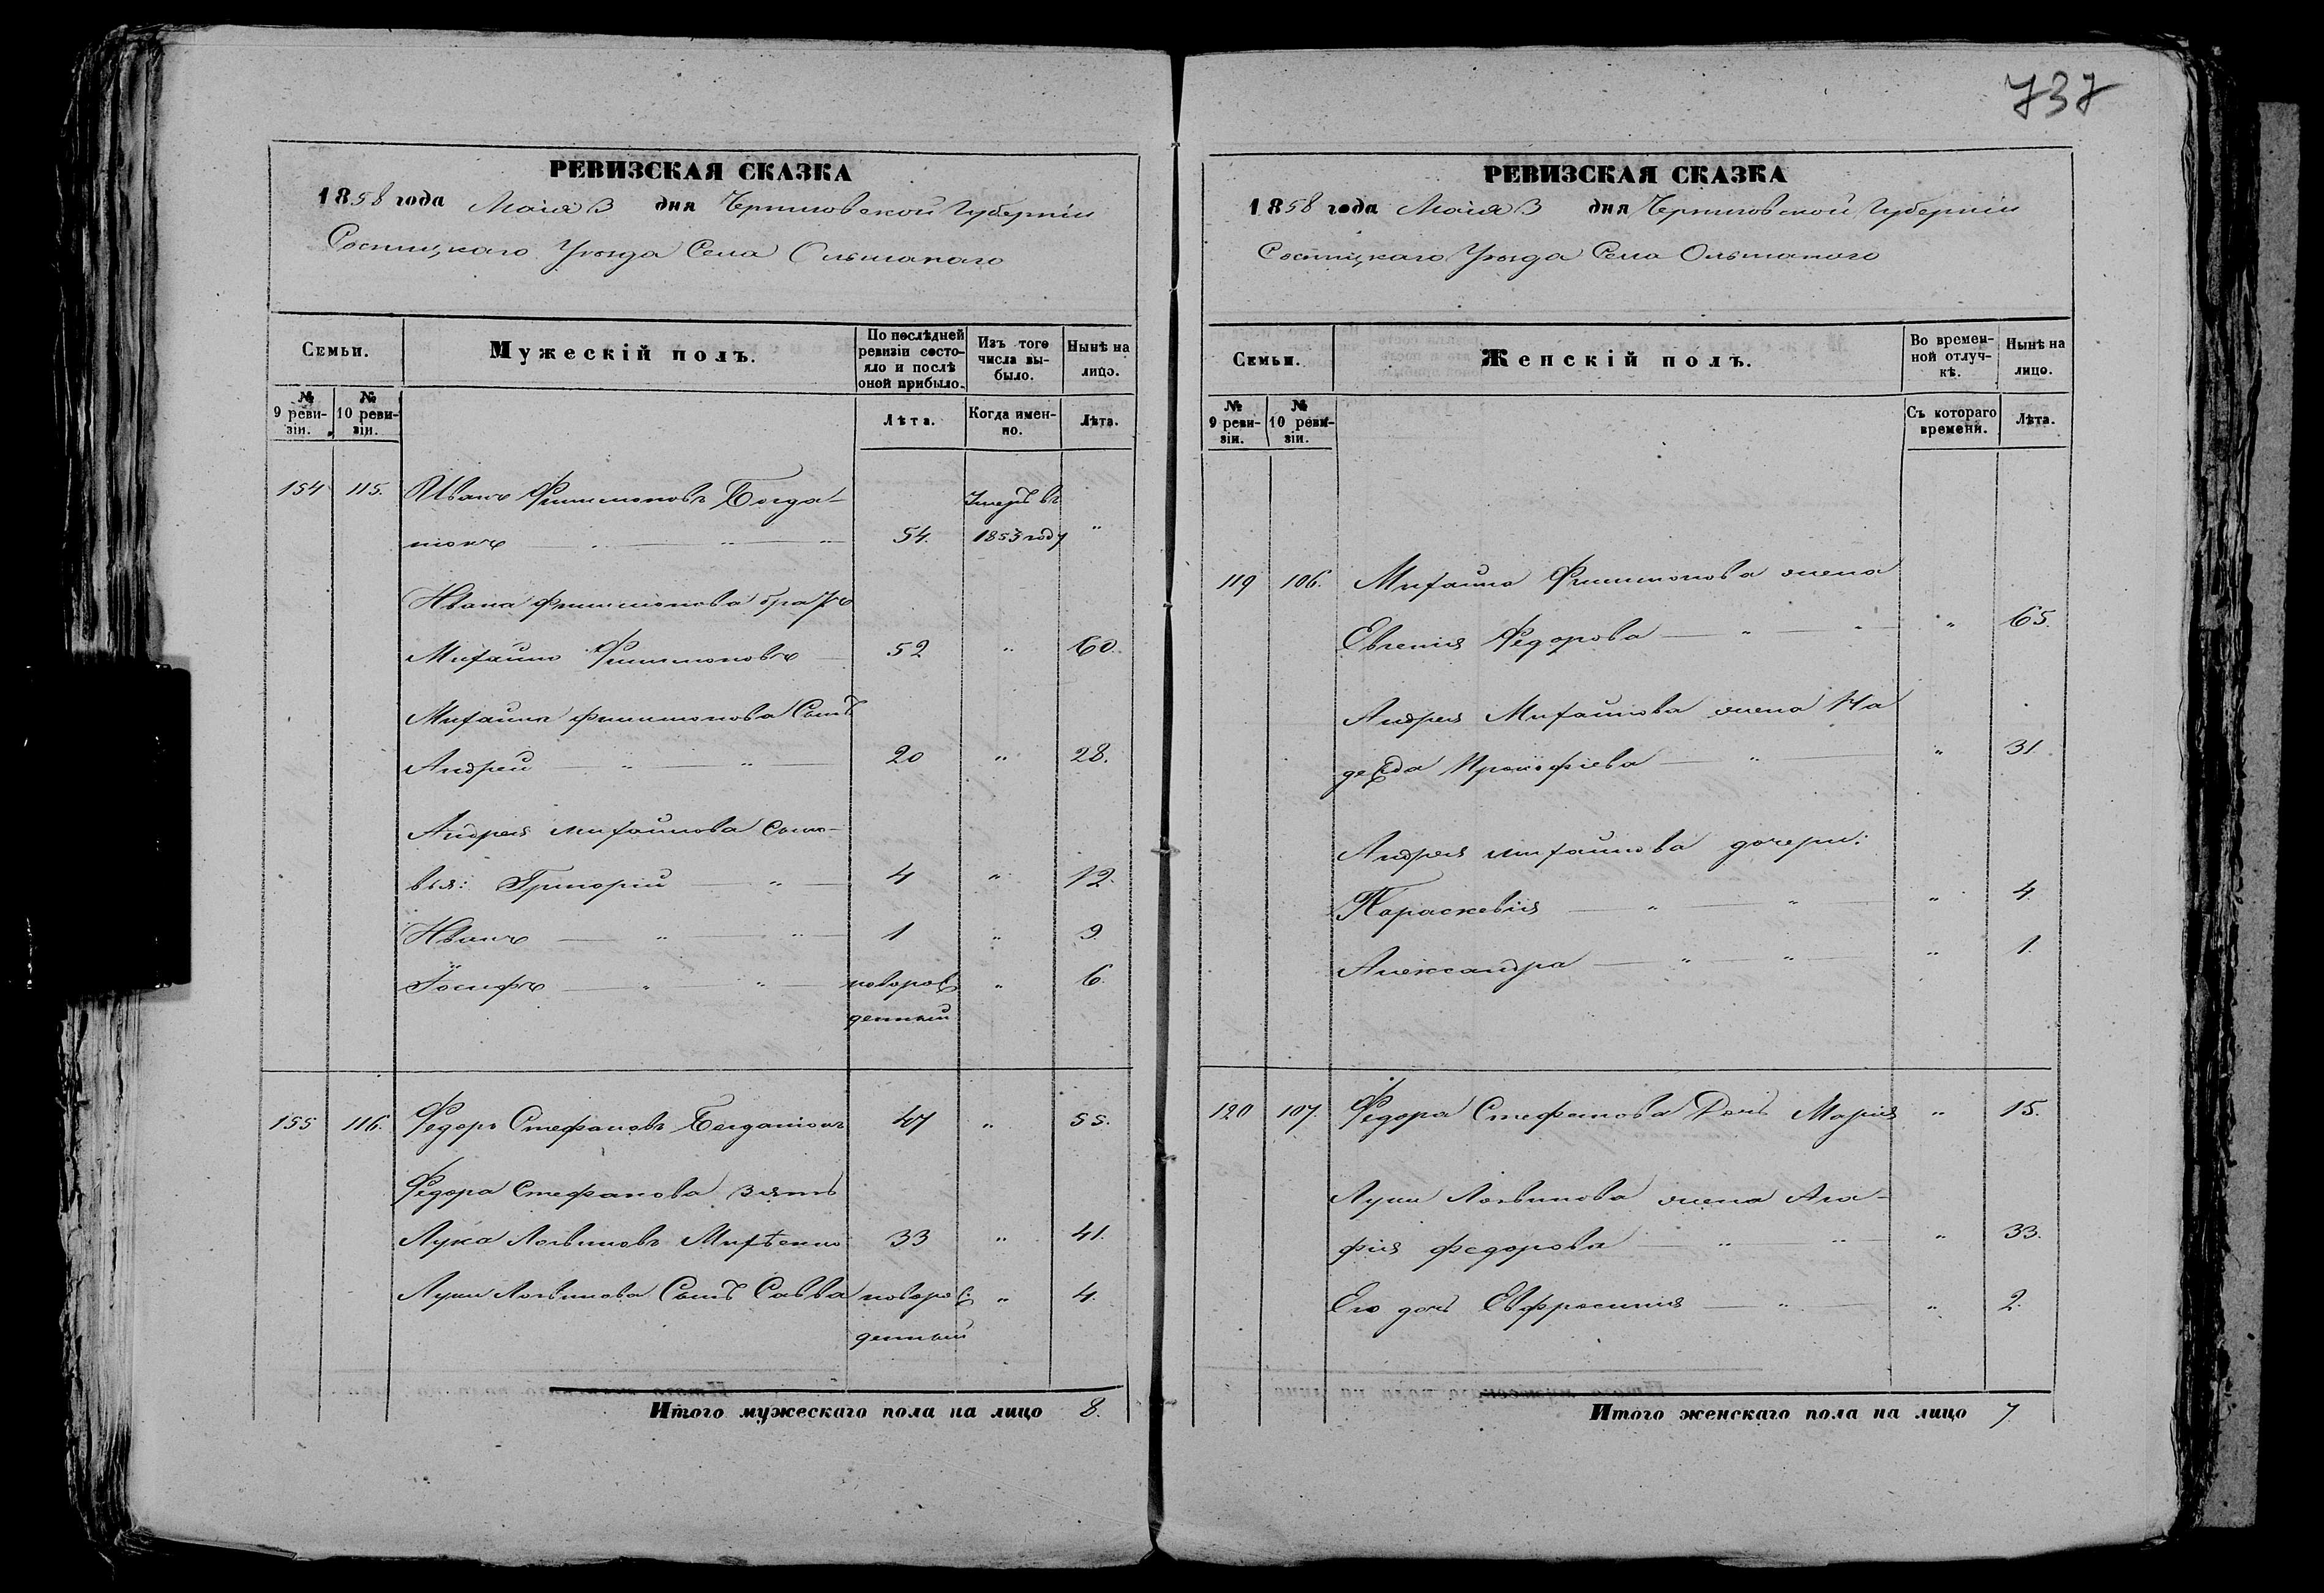 737
РЕВИЗСКАЯ СКАЗКА
1858 года Маія 3 дня Черниговской Губерніи
Сосницкаго Уѣзда Села Ольшанаго
Семьи.
Мужескій полъ.
По послѣдней ревизіи состояло и послѣ оной прибыло.
Изъ того числа выбыло.
Нынѣ на лицо.
№ 9 ревизіи.
№ 10 ревизіи.
Лѣта.
Когда именно.
Лѣта.
154 115. Иванъ Филимоновъ Богда-
Умеръ въ
54. 1853 году "
Ивана Филимонова братъ
Михаило Филимоновъ 52 " 60.
Михаила Филимонова Сынъ
Андрей " " 20 " 28.
Андрея Михайлова сыно-
вья: Григорій " 4 " 12.
Иванъ " " 1 " 9.
Іосифъ " " новорож " 6.
денный
155 116. Федоръ Стефановъ 47 " 55.
Федора Стефанова зять
Лука Логвиновъ 33 " 41.
Луки Логвинова Сынъ Савва новорож " 4.
денный
Итого мужескаго пола на лицо 8.
РЕВИЗСКАЯ СКАЗКА
1858 года Маія 3 дня Черниговской Губерніи
Сосницкаго Уѣзда Села Ольшанаго
Семьи.
Женскій полъ.
Во временной отлучкѣ.
Нынѣ на лицо.
№ 9 ревизіи.
№ 10 ревизіи.
Съ котораго времени.
Лѣта.
119 106. Михаила Филимонова жена
Евгенія Федорова " " " 65.
Андрея Михайлова жена На
дежда Прокофіева " " 31.
Андрея Михайлова дочери:
Параскевія " " " 4.
Александра " " " 1.
120 107. Федора Стефанова Дочь Марія " 15.
Луки Логвинова жена Ага-
фія Федорова " " " 33.
Его дочь Евфросинія " " 2.
Итого женскаго пола на лицо 7